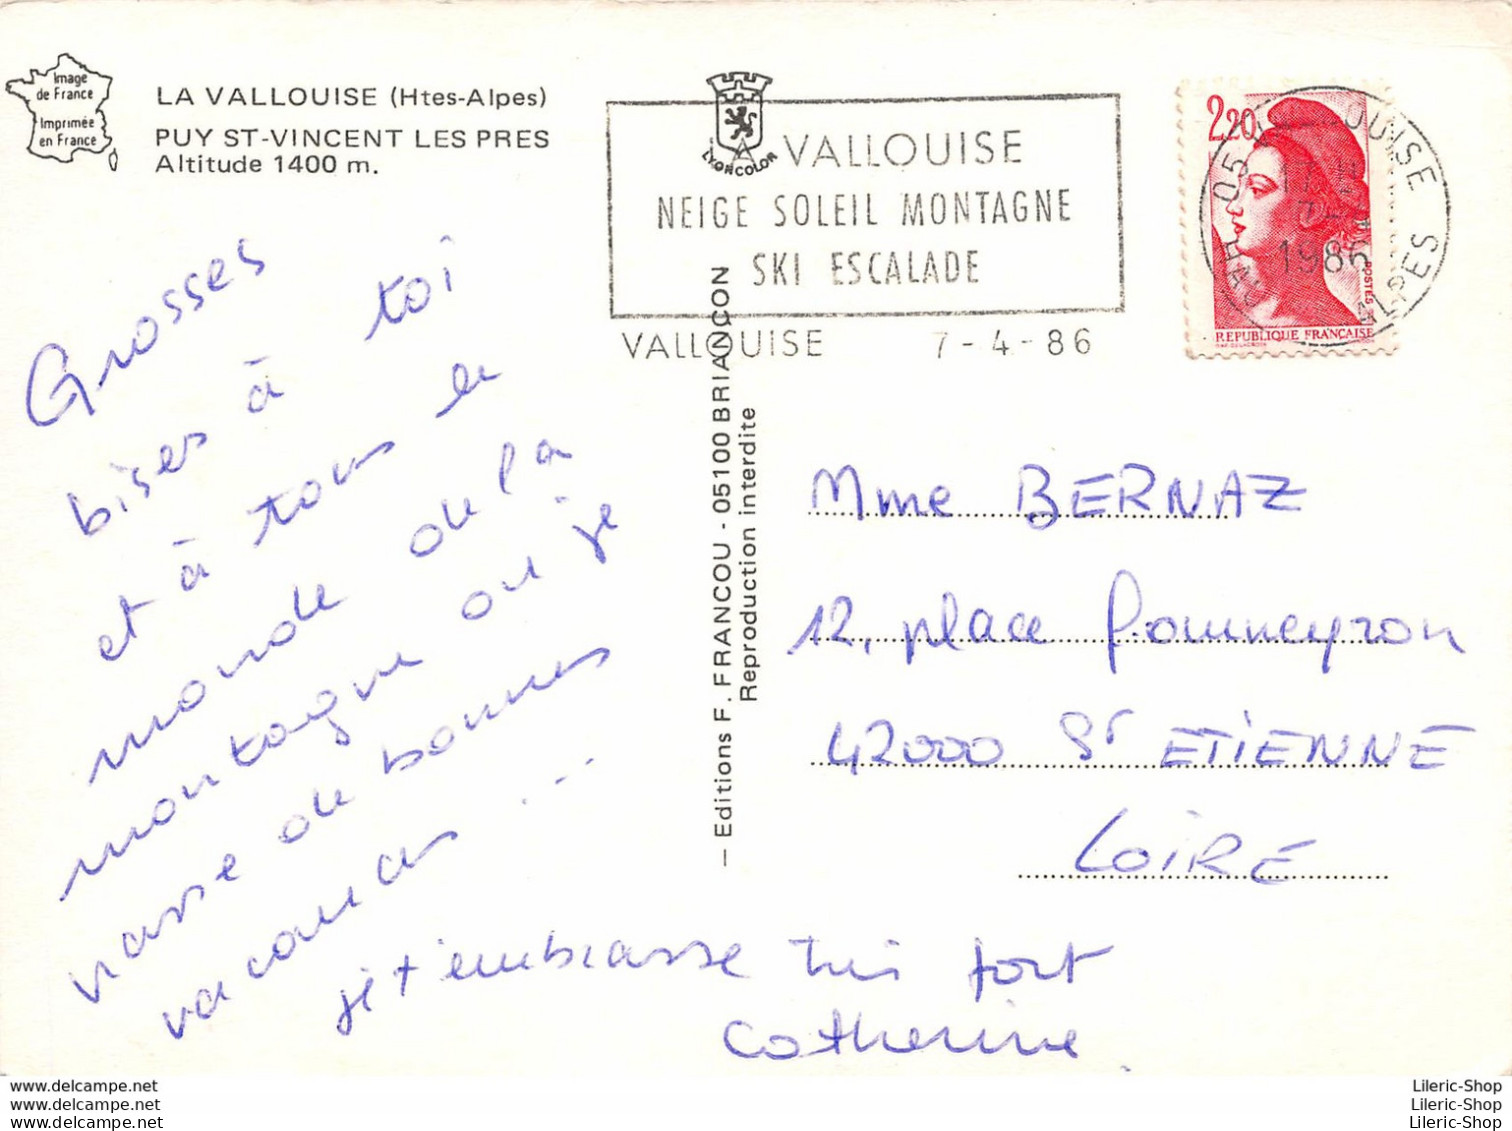 Image
de France
Imprimée
en France
LA VALLOUISE (Htes-Alpes)
PUY ST-VINCENT LES PRES
Altitude 1400 m.
LYONCOLOR
A VALLOUISE
NEIGE SOLEIL MONTAGNE
SKI ESCALADE
VALLOUISE 7-4-86
2,20
POSTES
REPUBLIQUE FRANÇAISE
05
1986
ALPES
Grosses
bises à toi
et à tous le
monde de la
montagne où je
passe de bonnes
vacances ...
je t'embrasse très fort
Catherine.
— Editions F. FRANCOU - 05100 BRIANÇON
Reproduction interdite
Mme BERNAZ
12, place Pommeyron
42000 St ETIENNE
LOIRE
www.delcampe.net
www.delcampe.net
www.delcampe.net
Lileric-Shop
Lileric-Shop
Lileric-Shop